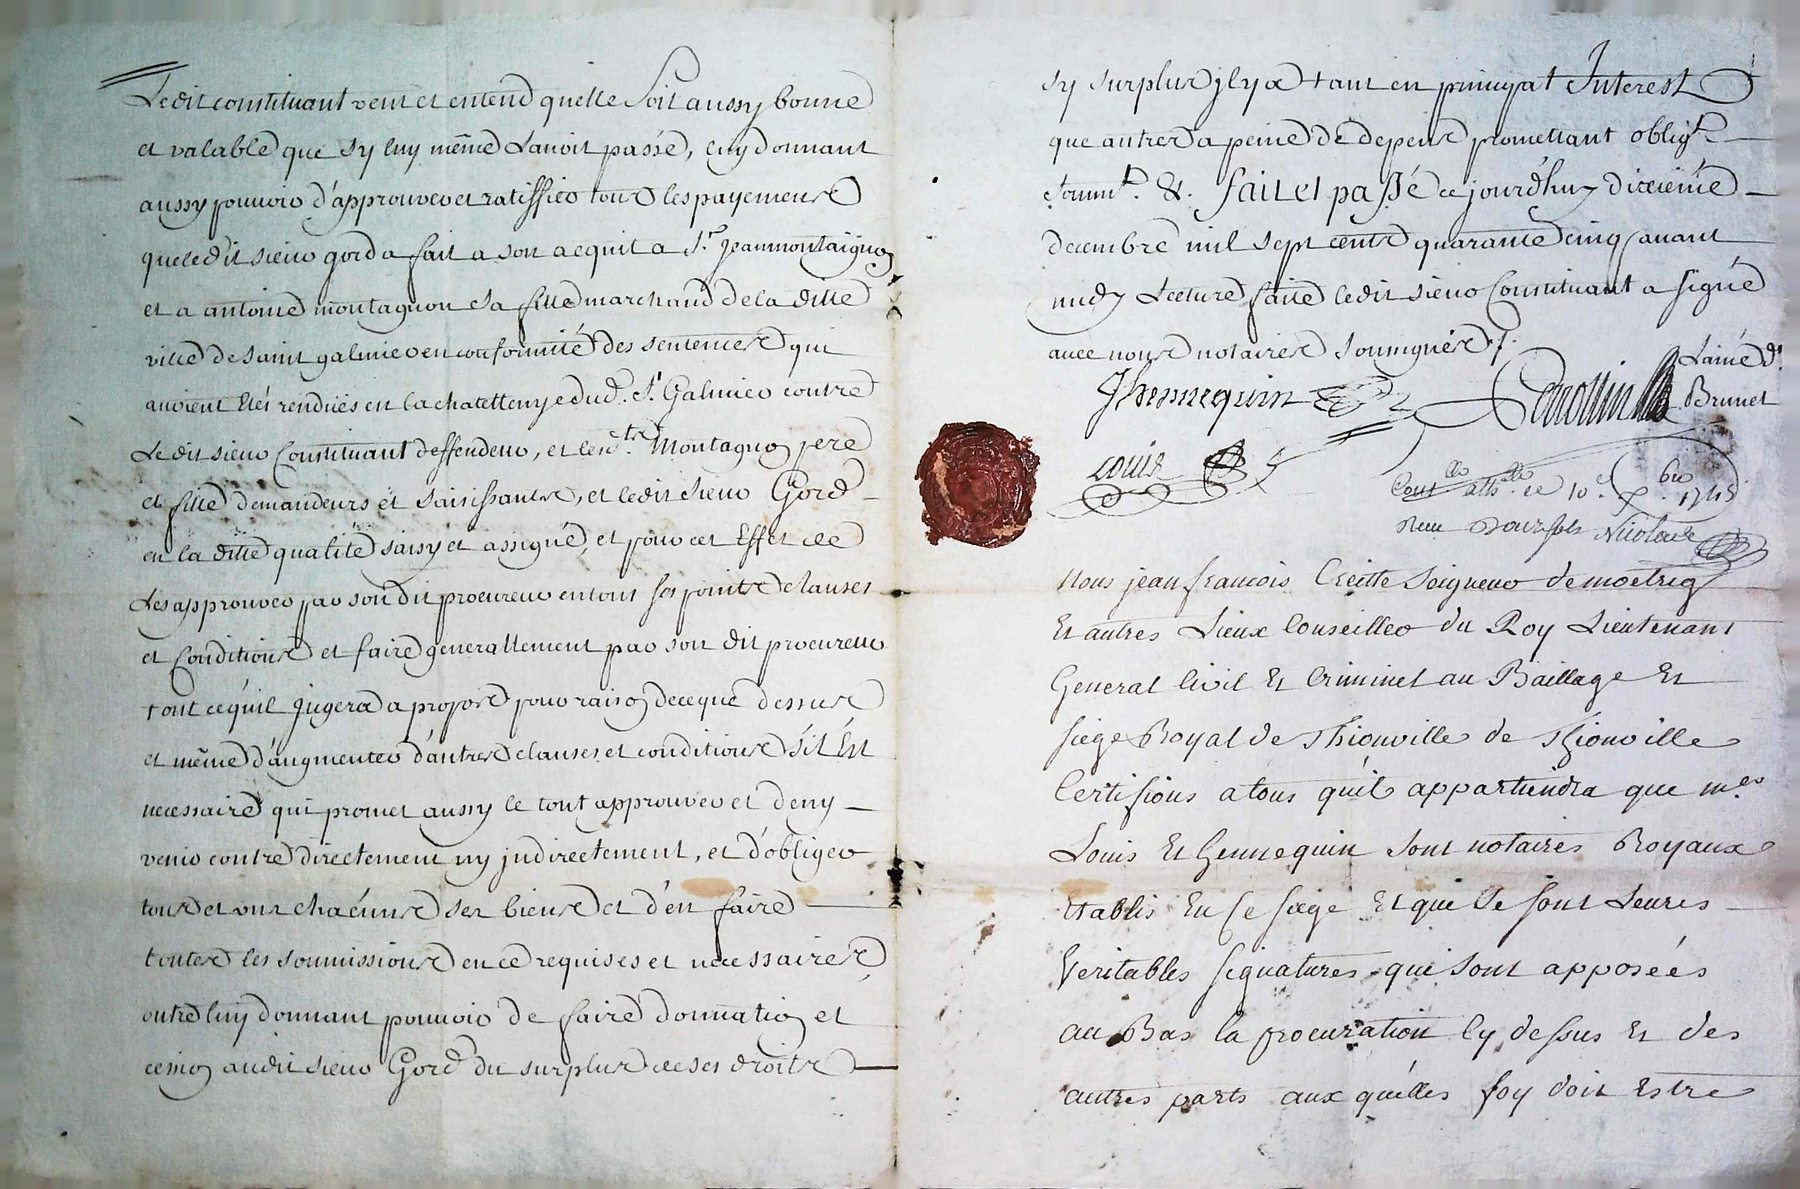 Ledit constituant veut et entend quelle soit aussy bonne
et valable que sy luy même Lavoit passé, luy donnant
aussy pouvoir d'approuver et ratiffier tous les payements
que ledit sieur gord a fait a son acquit a Sr. Jean montaignon
et a antoine montagnon sa fille marchand de la ditte
ville de saint galmier en conformité des sentences qui
avoient Etés rendües en la chatellenye dud. St. Galmier contre
Ledit sieur Constituant deffendeur, et les Montagnon pere
et fille demandeurs et saisissants, et ledit sieur Gord
en la ditte qualité saisy et assigné, et pour cet Effet de
Les approuver par son dit procureur en tous ses points clauses
et Conditions et faire generallement par son dit procureur
tout ce qu'il jugera a propos pour raison de ce que dessus
et même d'augmenter d'autres clauses et conditions s'il Est
necessaire qui promet aussy le tout approuver et deny
venir contre directement ny jndirectement, et d'obliger
tous et uns chacuns ses biens et d'en faire
toutes les soumissions en ce requises et necessaires
outre luy donnant pouvoir de faire donnation et
cession audit sieur Gord du surplus de ses droits
sy surplus jl y a tant en principal Interest
que autres a peine de depens promettant oblig.
&. fait et passé ce jourd'huy dixieme
decembre mil sept cents quarante cinq avant
midy Lecture faite ledit sieur Constituant a signé
avec nous notaires soussignés
JHennequin Lainé d.
Brunet
Louis
ce 10. 1745
Nicolas
Nous jean francois Seigneur de
Et autres Lieux Conseiller du Roy Lieutenant
General Civil Et Criminel au Baillage Et
siege Royal de Thionville de Thionville
Certifions a tous qu'il appartiendra que mes
Louis Et hennequin sont notaires Royaux
Etablis En Ce siege Et que Ce sont Leures
Veritables signatures qui sont apposées
au Bas la procuration Cy dessus Et des
autres parts aux quelles foy doit Estre